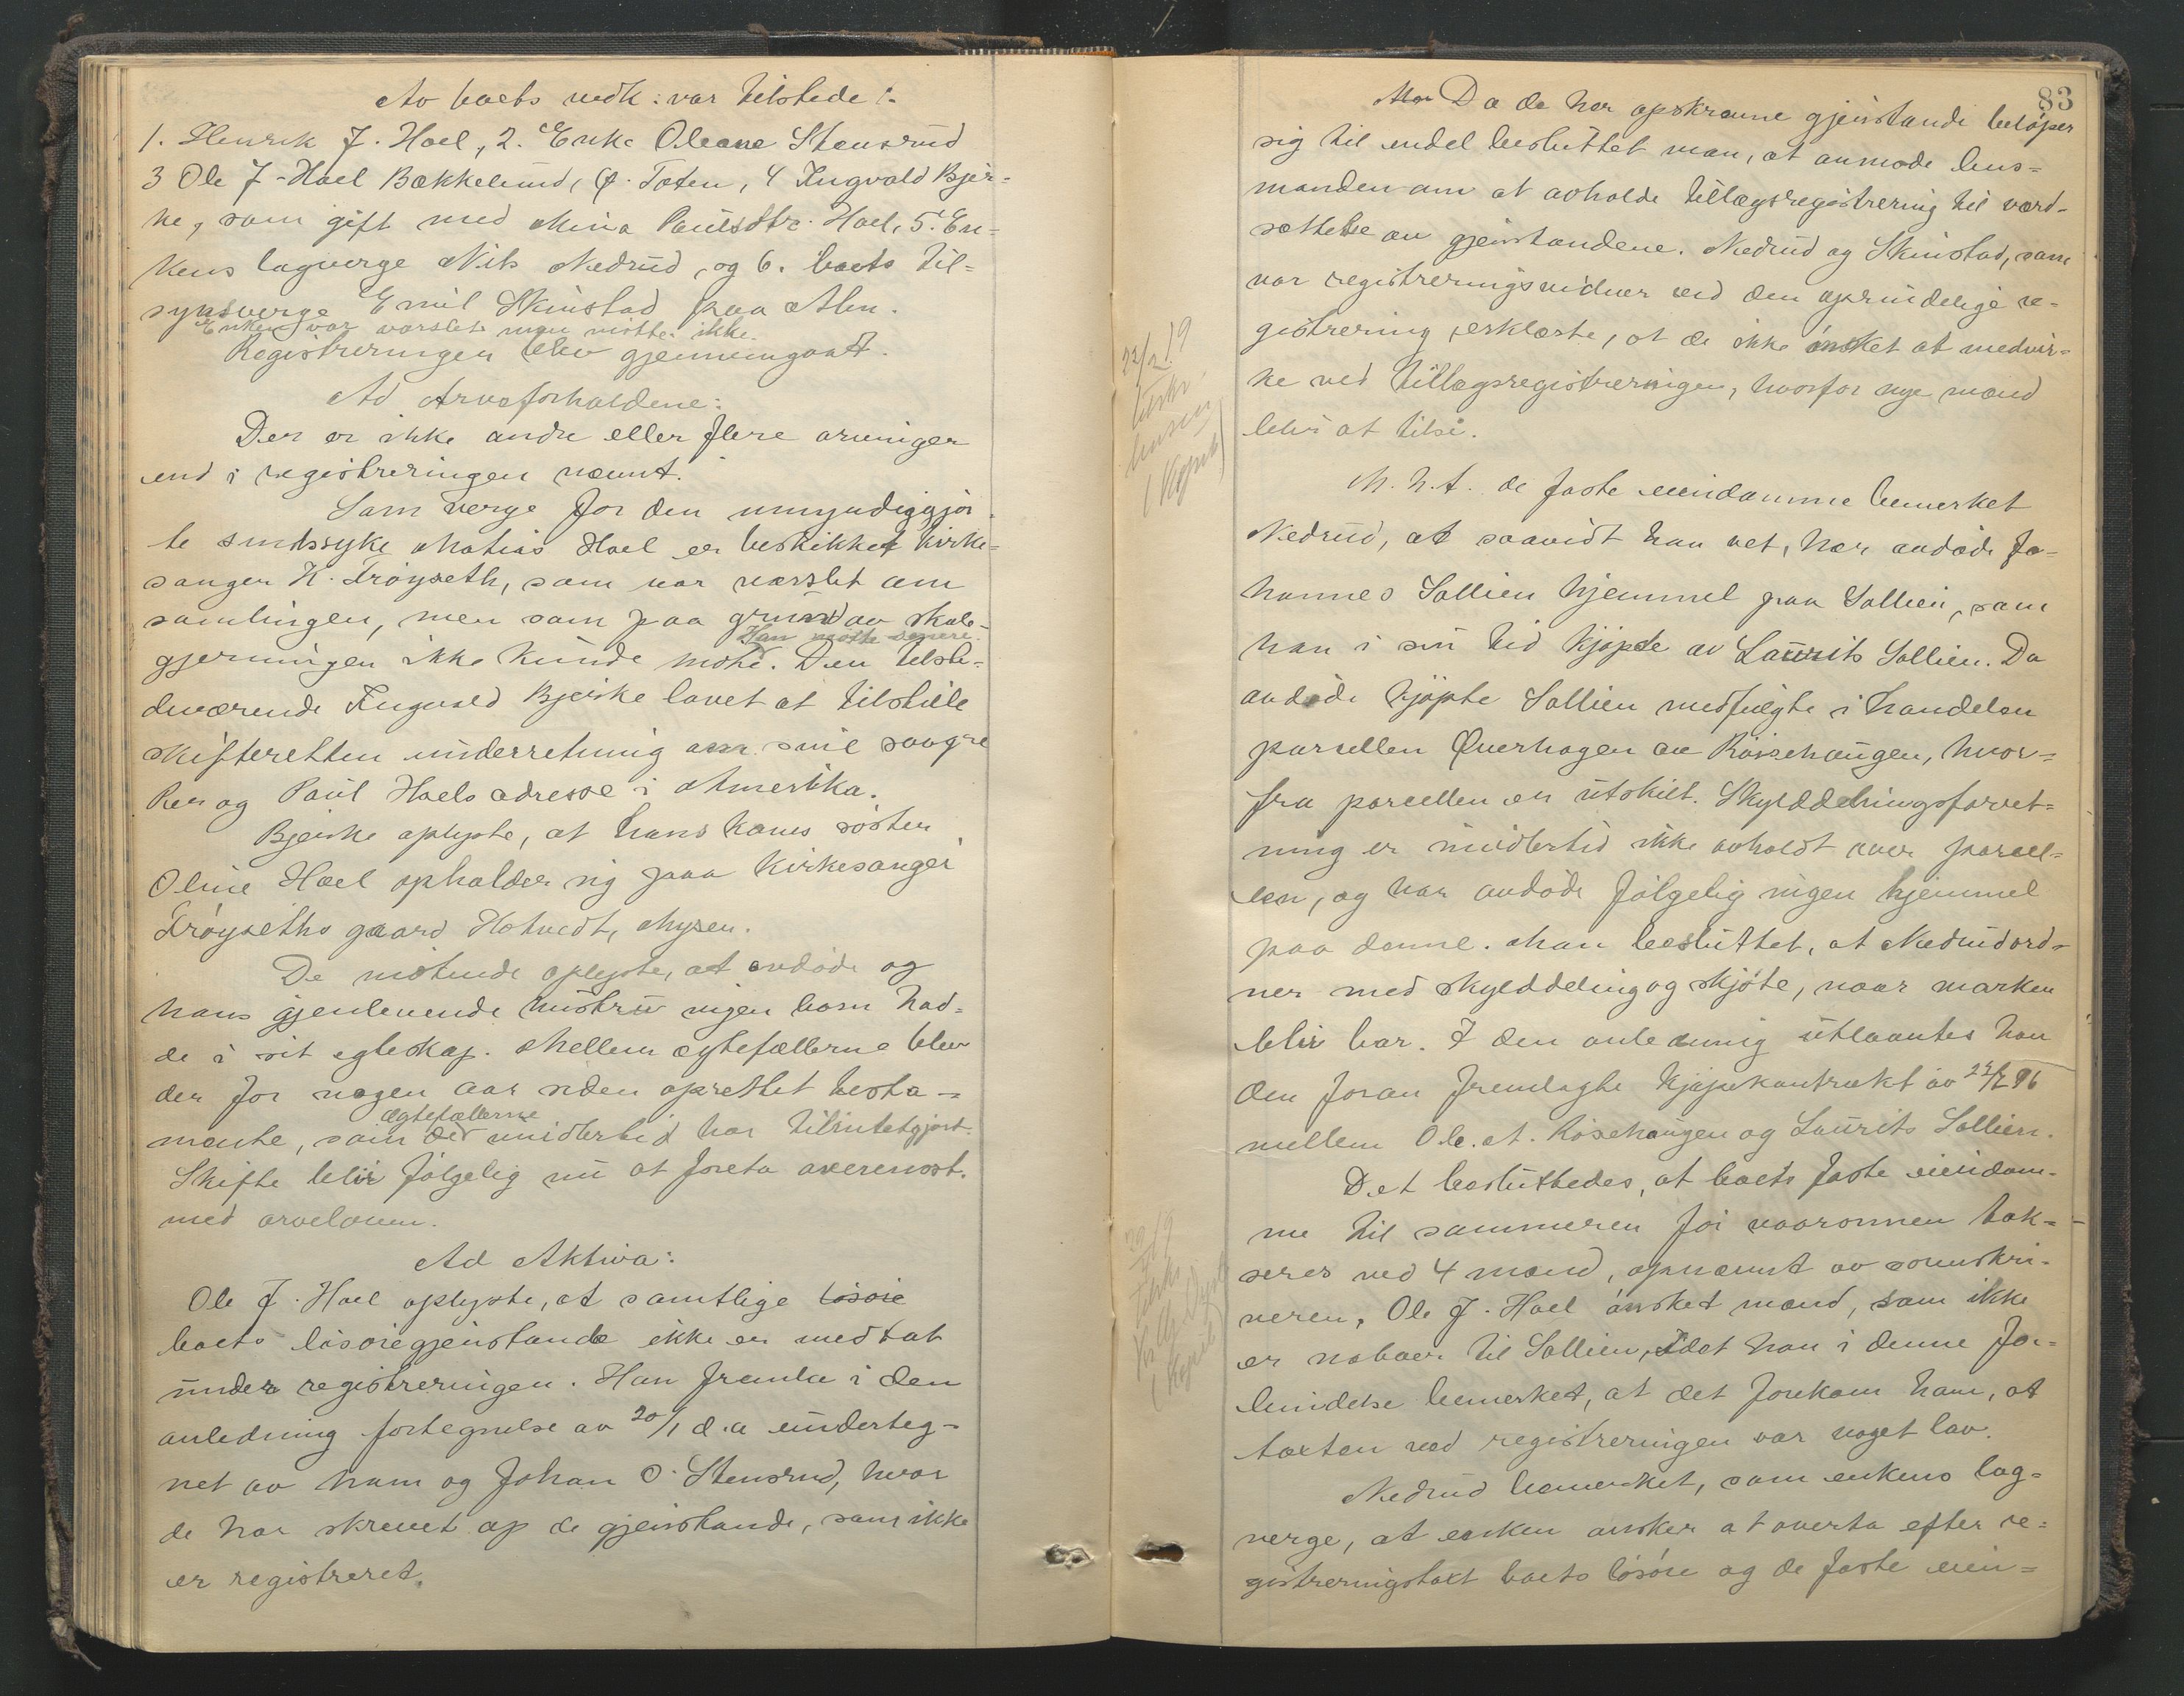 Av boets vedk: var tilstede:
1. Henrik J. Hoel, 2. Enke Oleane Stensrud
3 Ole J. Hoel Bakkelund, Ø. Toten, 4 Ingvald Bjer-
ke, som gift med Mina Paulsdtr. Hoel, 5. En-
kens lagverge Nils Nedrud, og 6. boets til-
synsverge Emil Skinstad paa Alm.
Enken var varslet men møtte ikke.
Registreringen blev gjennemgaat.
Ad Arveforholdene:
Der er ikke andre eller flere arvinger
end i registreringen nævnt.
Som verge for den umyndiggjor-
te sindssyke Matias Hoel er beskikket kirke-
sanger K. Frøyseth, som var varslet om
samlingen, men som paa grund av skole-
Han møtte senere.
gjerningen ikke kunde møte. Den tilste-
deværende Ingvald Bjerke lovet at tilstille
skifteretten underretning om
og Paul Hoels adresse i Amerika.
Bjerke oplyste, at hans kones søster
Oline Hoel opholder sig paa Kirkesanger
Frøyseths gaard Hotvedt, Mysen.
De møtende oplyste, at avdøde og
hans gjenlevende hustru ingen barn had-
de i sit egteskap. Mellem egtefællerne blev
der for nogen aar siden oprettet testa-
ægtefællerne
mente, som de imidlertid har tilintetgjort.
Skifte blir følgelig nu at foreta overenst.
med arveloven.
Ad Aktiva:
Ole J. Hoel oplyste, at samtlige løsøie
boets løsøiegjenstande ikke er medtat
under registreringen. Han fremla i den
anledning fortegnelse av 20/1 d.a underteg-
net av ham og Johan O. Stensrud, hvor
de har skrevet op de gjenstande, som ikke
er registreret.
83
Da de her opskrevne gjenstande beløper
sig til endel besluttet man, at anmode lens-
manden om at avholde tillægsregistrering til værd-
sættelse av gjenstandene. Nedrud og Skinstad, som
var registreringsvidner ved den oprindelige re-
gistrering, erklærte, at de ikke ønsket at medvir-
ke ved tillægsregistreringen, hvorfor nye mænd
blir at tilsi.
M.h.t. de faste eiendomme bemerket
Nedrud, at saavidt han vet, har avdøde Jo-
hannes Sollien hjemmel paa Sollien, som
han i sin tid kjøpte av Laurits Sollien. Da
avdøde kjøpte Sollien medfulgte i handelen
parsellen Øverhagen av Røisehaugen, hvor-
fra parcellen er utskilt. Skylddelingsforret-
ning er imidlertid ikke avholdt over parcel-
len, og har avdøde følgelig ingen hjemmel
paa denne. Man besluttet, at Nedrud ord-
ner med skylddeling og skjøte, naar marken
blir bar. I den anledning utlaantes han
den foran fremlagte kjøpekontrakt av 96
mellem Ole A. Røsehaugen og Laurits Sollien.
Det besluttedes, at boets faste eiendom-
me til sommeren før vaaronnen tak-
seres ved 4 mænd, opnævnt av sorenskri-
veren, Ole J. Hoel ønsket mænd, som ikke
er naboer til Sollien, idet han i denne for-
bindelse bemerket, at det forekom ham, at
taxten ved registreringen var noget lav.
Nedrud bemerket, som enkens lag-
verge, at enken ønsker at overta efter re-
gistreringstakt boets løsøre og de faste eien-